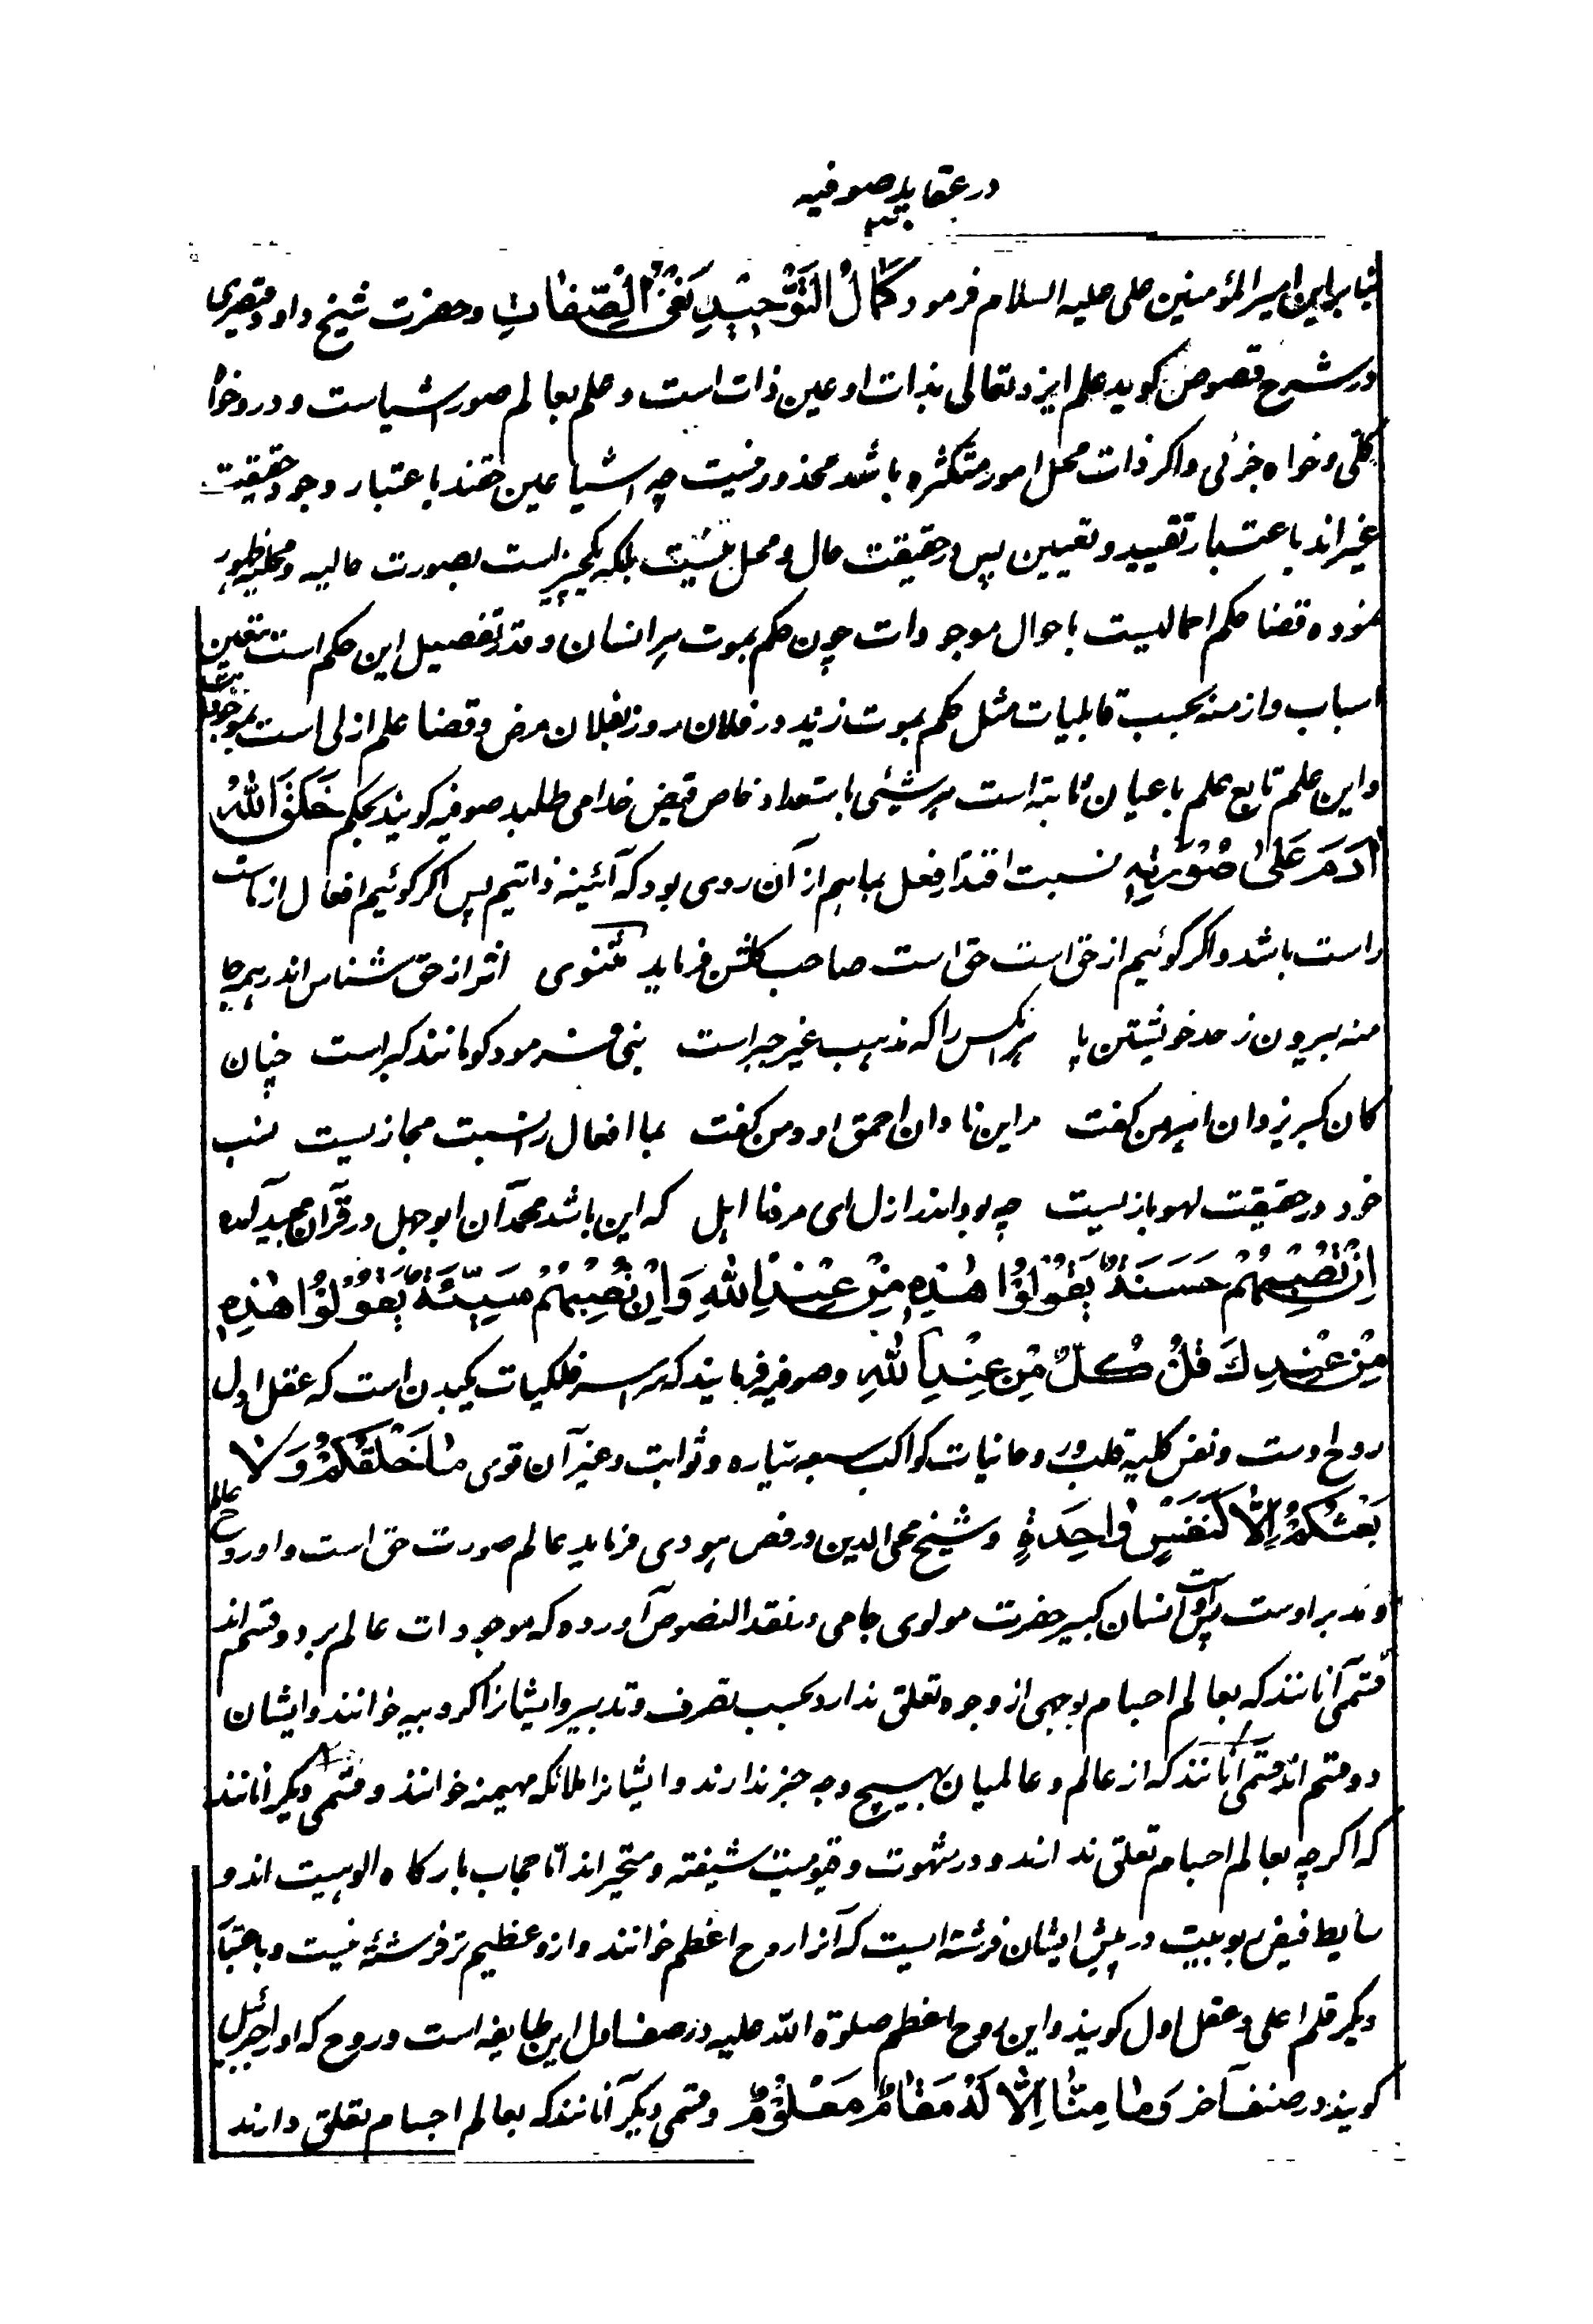 در عقاید صوفیه
بنابراین امیرالمؤمنین علی علیه السلام فرمود کَمَالُ التَّوْحِیْدِ نَفْیُ الصِّفَاتِ و حضرت شیخ داود قیصری
در شرح فصوص کوید علم ایزد تعالی بذات او عین ذات است و علم بعالم صور اشیاست و درو خواه
کلی و خواه جزئی و اکر ذات محل امور متکثره باشد محذور نیست چه اشیا عین حقند باعتبار وجود حقیقت
غیراند باعتبار تقیید و تعیین پس در حقیقت حال و محل نیست بلکه یکچیز است بصورت حالیه و محلیه ظهور
نموده قضا حکم اجمالیست باحوال موجودات چون حکم بموت هر انسان و قدر تفصیل این حکم است بتعین
اسباب و ازمنه بحسب قابلیات مثل حکم بموت زید در فلان روز بفلان مرض و قضا علم ازلی است بموجودات
و این علم تابع علم باعیان ثابته است هر شیئی باستعداد خاص فیض خدا می طلبد صوفیه کویند بحکم خَلَقَ اللهُ
اٰدَمَ عَلٰی صُوْرَتِهٖ نسبت اقتدا فعل بما هم از آن روی بود که آئینه ذاتیم پس اکر کوئیم افعال از ماست
راست باشد و اکر کوئیم از حق است حق است صاحب کلشن فرماید مثنوی اثر از حق شناس اندر همه جا
منه بیرون ز حد خویشتن پا هر آنکس را که مذهب غیر جبر است نبی فرمود کو مانند کبر است چنان
کان کبر یزدان اهرمن کفت مر این نادان احمق او و من کفت بما افعال را نسبت مجازیست نسب
خود در حقیقت لهو بازیست چه بود اندر ازل ای مرد نا اهل که این باشد محمد آن ابوجهل در قرآن مجید آمده
اِنْ تُصِبْهُمْ حَسَنَةٌ یَّقُوْلُوْا هٰذِهٖ مِنْ عِنْدِ اللهِ وَاِنْ تُصِبْهُمْ سَیِّئَةٌ یَّقُوْلُوْا هٰذِهٖ
مِنْ عِنْدِكَ قُلْ كُلٌّ مِّنْ عِنْدِ اللهِ و صوفیه فرمایند که سراسر فلکیات یکبدن است که عقل اول
روح اوست و نفس کلیه قلب و روحانیات کواکب سبعه سیاره و ثوابت و غیر آن قوی مَا خَلْقُكُمْ وَلَا
بَعْثُكُمْ اِلَّا كَنَفْسٍ وَّاحِدَةٍ و شیخ محی الدین در فص هودی فرماید عالم صورت حق است و او روح عالم
و مدبر اوست پس اوست انسان کبیر حضرت مولوی جامی در نقد النصوص آورده که موجودات عالم بر دو قسم اند
قسمی آنانند که بعالم اجسام بوجهی از وجوه تعلق ندارد بحسب تصرف و تدبیر و ایشانرا کروبیه خوانند و ایشان
دو قسم اند قسمی آنانند که از عالم و عالمیان بهیچ وجه خبر ندارند و ایشانرا ملائکه مهیمنه خوانند و قسمی دیکر آنانند
که اکرچه بعالم اجسام تعلق ندارند و در شهود و قیومیت شیفته و متحیراند اما حجاب بارکاه الوهیت اند و
سایط فیض ربوبیت در پیش ایشان فرشته ایست که آنرا روح اعظم خوانند و ازو عظیم تر فرشته نیست و باعتبار
دیکر قلم اعلی و عقل اول کویند و این روح اعظم صلوة الله علیه در صف اول این طایفه است و روح که او را جبرئیل
کویند در صنف آخر وَمَا مِنَّا اِلَّا لَهٗ مَقَامٌ مَّعْلُوْمٌ و قسمی دیکر آنانند که بعالم اجسام تعلق دارند